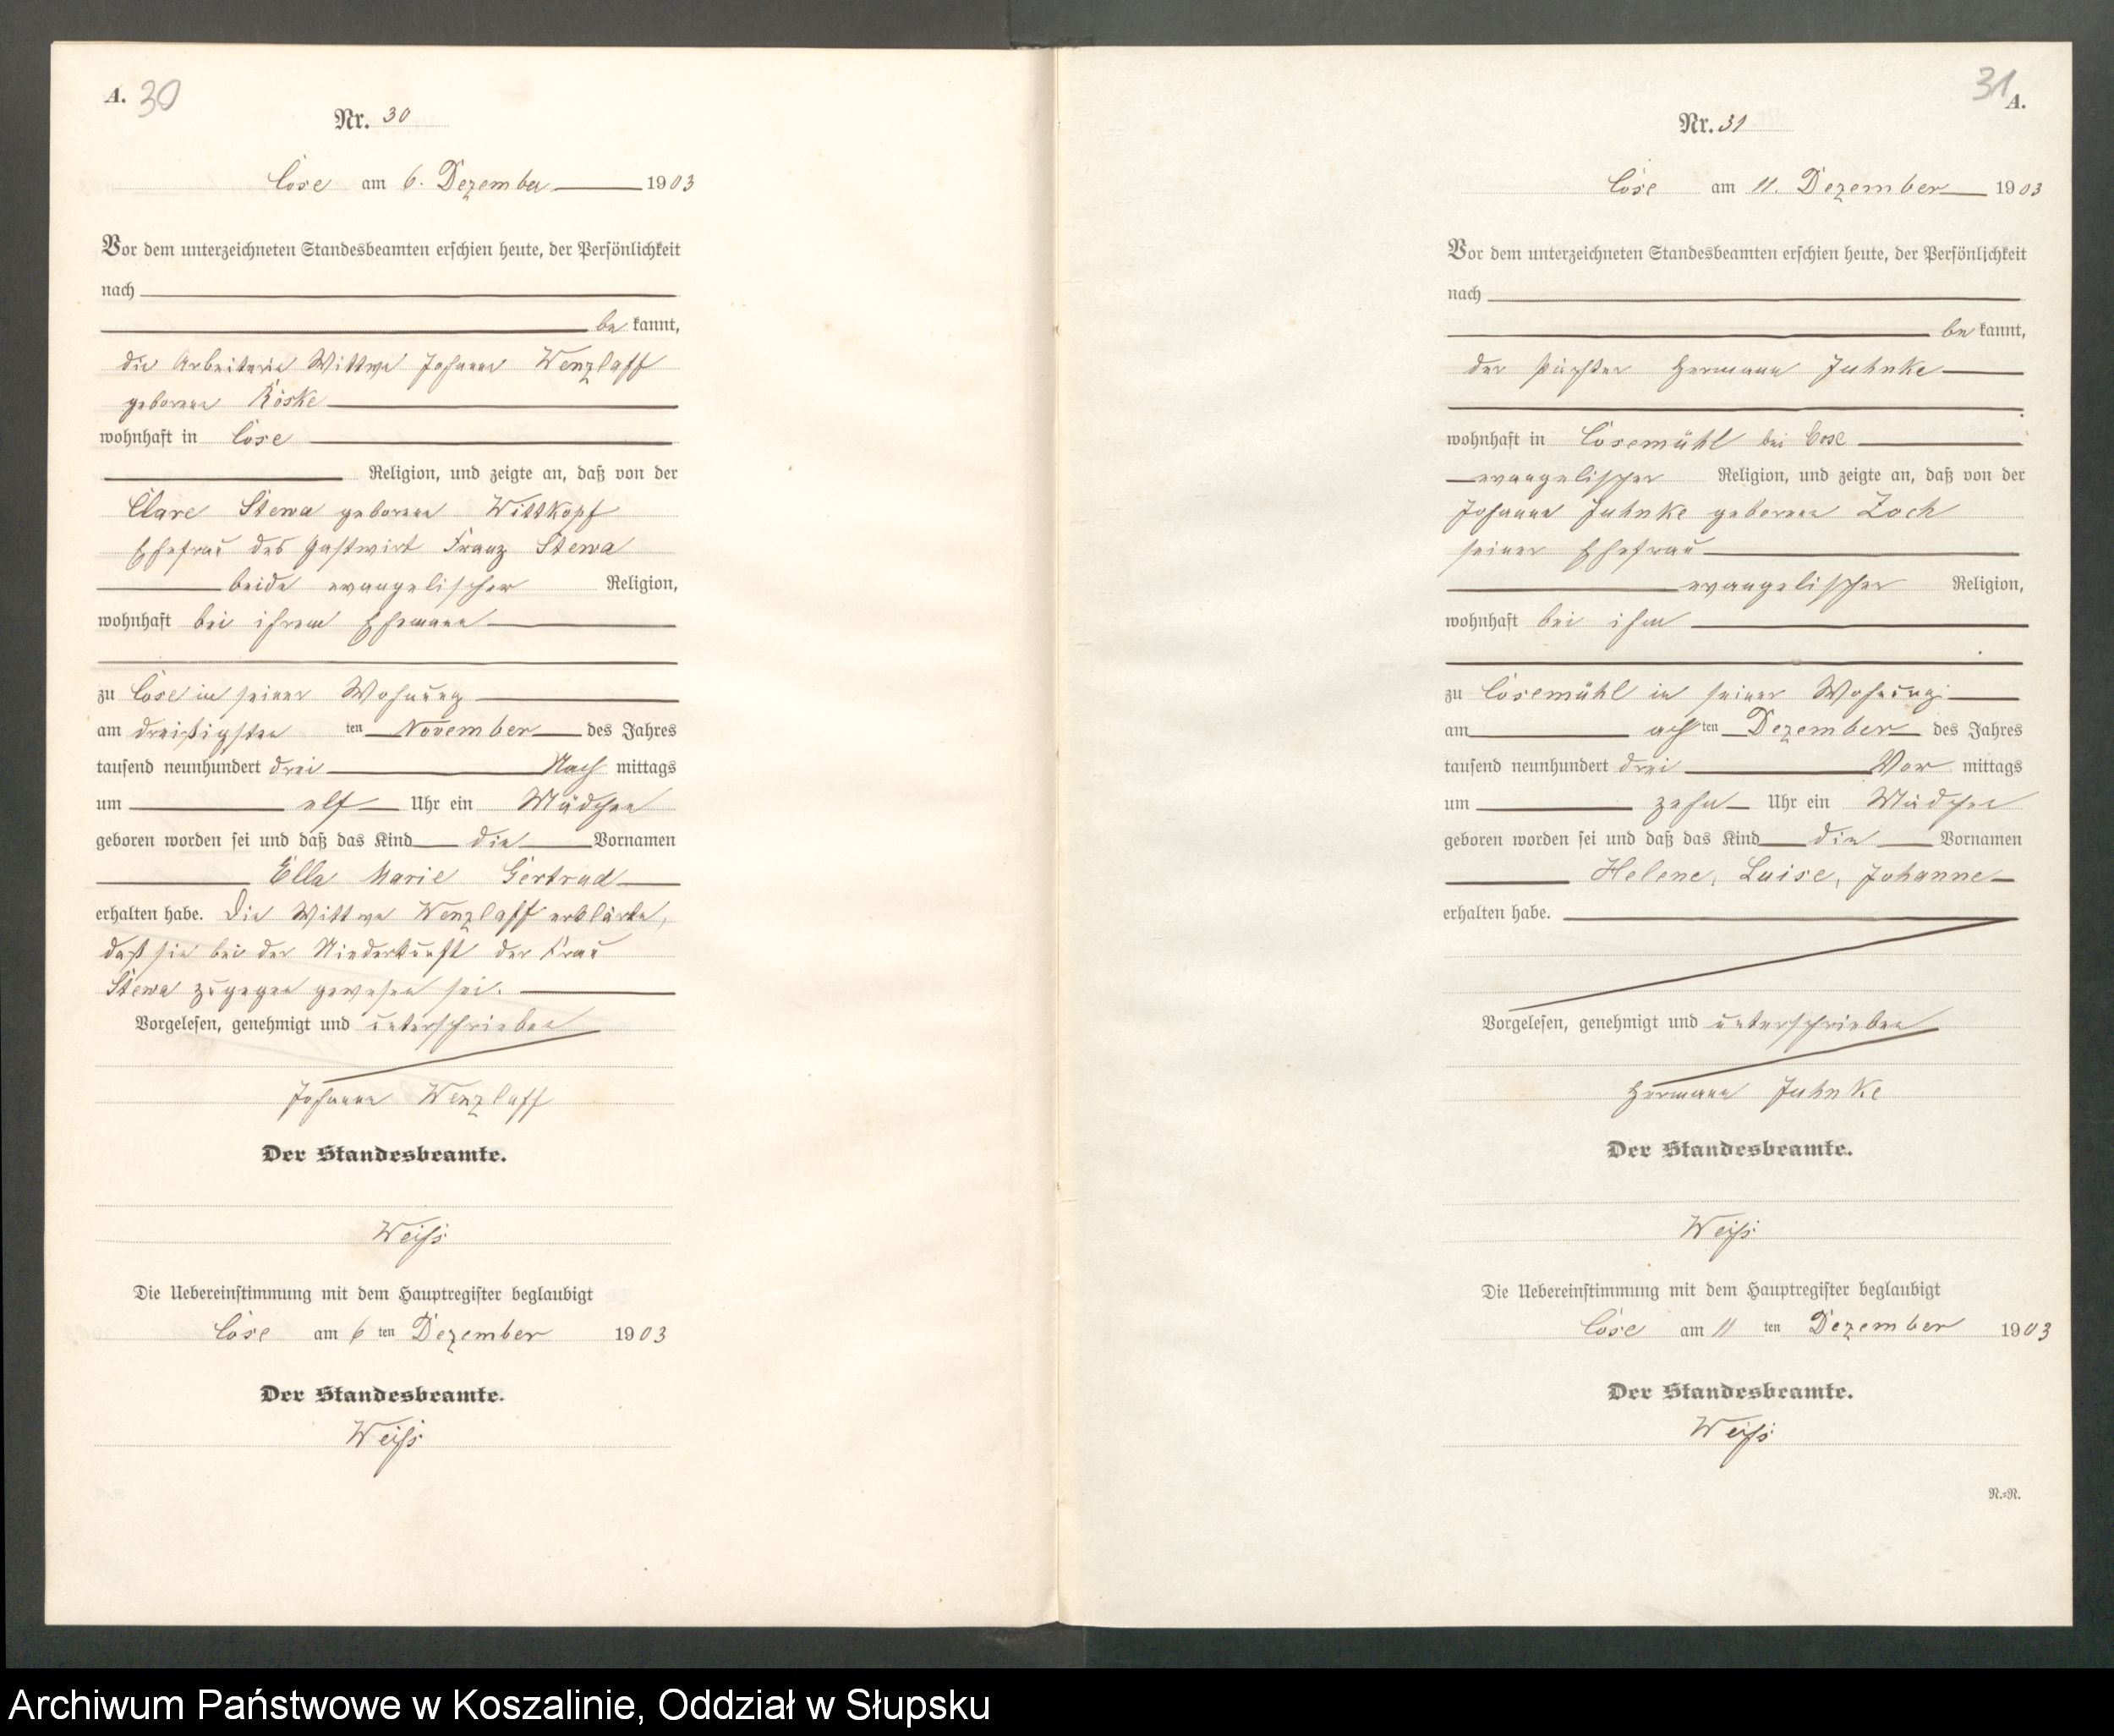 A. 30
Nr. 30
Cose am 6. Dezember 1903
Vor dem unterzeichneten Standesbeamten erschien heute, der Persönlichkeit
nach
be kannt,
die Arbeiterin Wittwe Johanne Wenzlaff
geborene Röske
wohnhaft in Cose
Religion, und zeigte an, daß von der
Clare Stewa geborene Wittkopf
Ehefrau des Gastwirt Franz Stewa
beide evangelischer Religion,
wohnhaft bei ihrem Ehemann
zu Cose in seiner Wohnung
am dreißigsten ten November des Jahres
tausend neunhundert drei Nach mittags
um elf Uhr ein Mädchen
geboren worden sei und daß das Kind die Vornamen
Ella Marie Gertrud
erhalten habe. Die Wittwe Wenzlaff erklärte,
daß sie bei der Niederkunft der Frau
Stewa zugegen gewesen sei.
Vorgelesen, genehmigt und unterschrieben
Johanne Wenzlaff
Der Standesbeamte.
Weiß
Die Uebereinstimmung mit dem Hauptregister beglaubigt
Cose am 6 ten Dezember 1903
Der Standesbeamte.
Weiß
31 A.
Nr. 31
Cose am 11. Dezember 1903
Vor dem unterzeichneten Standesbeamten erschien heute, der Persönlichkeit
nach
be kannt,
der Pächter Hermann Juhnke
wohnhaft in Cosemühl bei Cose
evangelischer Religion, und zeigte an, daß von der
Johanne Juhnke geborene Zoch
seiner Ehefrau
evangelischer Religion,
wohnhaft bei ihm
zu Cosemühl in seiner Wohnung
am ach ten Dezember des Jahres
tausend neunhundert drei Vor mittags
um zehn Uhr ein Mädchen
geboren worden sei und daß das Kind die Vornamen
Helene, Luise, Johanne
erhalten habe.
Vorgelesen, genehmigt und unterschrieben
Hermann Juhnke
Der Standesbeamte.
Weiß
Die Uebereinstimmung mit dem Hauptregister beglaubigt
Cose am 11 ten Dezember 1903
Der Standesbeamte.
Weiß
R.=R.
Archiwum Państwowe w Koszalinie, Oddział w Słupsku